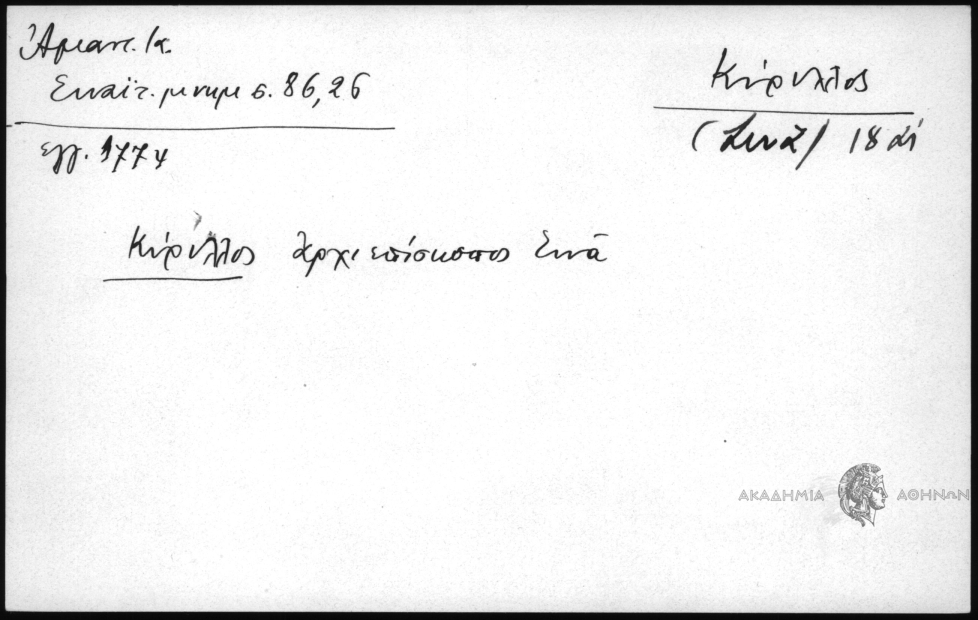 Ἀμαντ. Κ.
Σιναϊτ. μνημ σ. 86,26
ἐγγ. 1774
Κύριλλος
(Σινᾶ) 18 αἰ
Κύριλλος ἀρχιεπίσκοπος Σινᾶ
ΑΚΑΔΗΜΙΑ ΑΘΗΝΩΝ